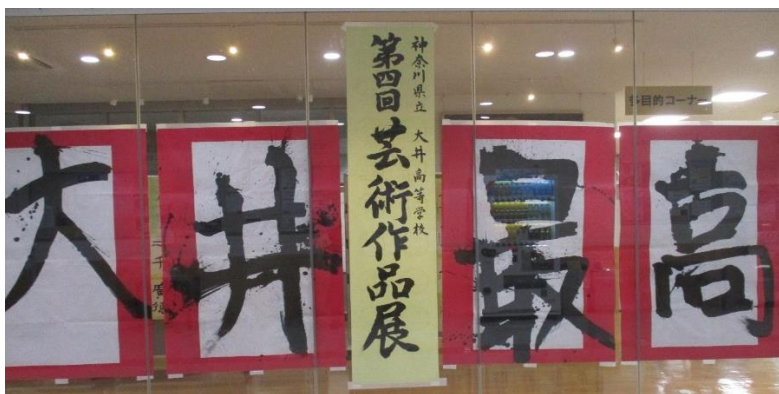 神奈川県立 大井高等学校
第四回 芸術作品展
大井最高
多目的コーナー